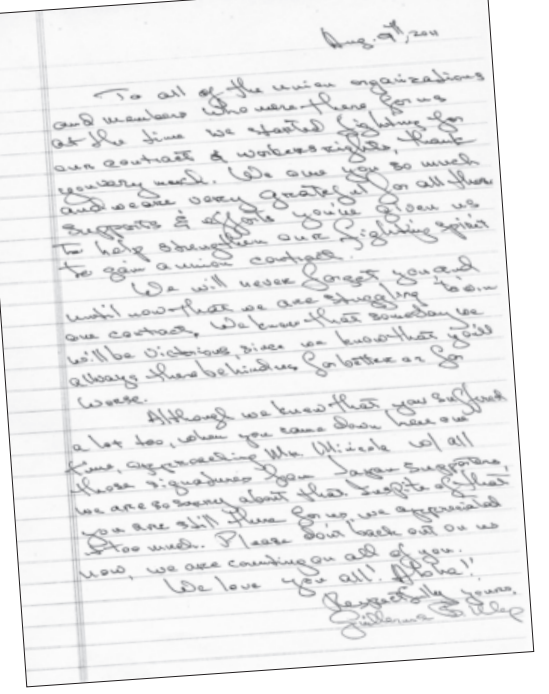 Aug. 9th, 2011
To all of the union organizations
and members who were there for us
at the time we started fighting for
our contract & workers rights, thank
you very much. We owe you so much
and we are very grateful for all those
supports & efforts you've given us
to help strengthen our fighting spirit
to gain a union contract.
We will never forget you and
until now that we are struggling to win
our contract. We know that someday we
will be victorious, since we know that you'll
always there behind us for better or for
worse.
Although we knew that you suffered
a lot too, when you came down here one
time, approaching Mr. w/ all
those signatures from Japan supporters,
we are so sorry about that. Inspite of that
you are still there for us, we appreciated
it too much. Please don't back out on us
now, we are counting on all of you.
We love you all! Aloha!!
Respectfully yours,